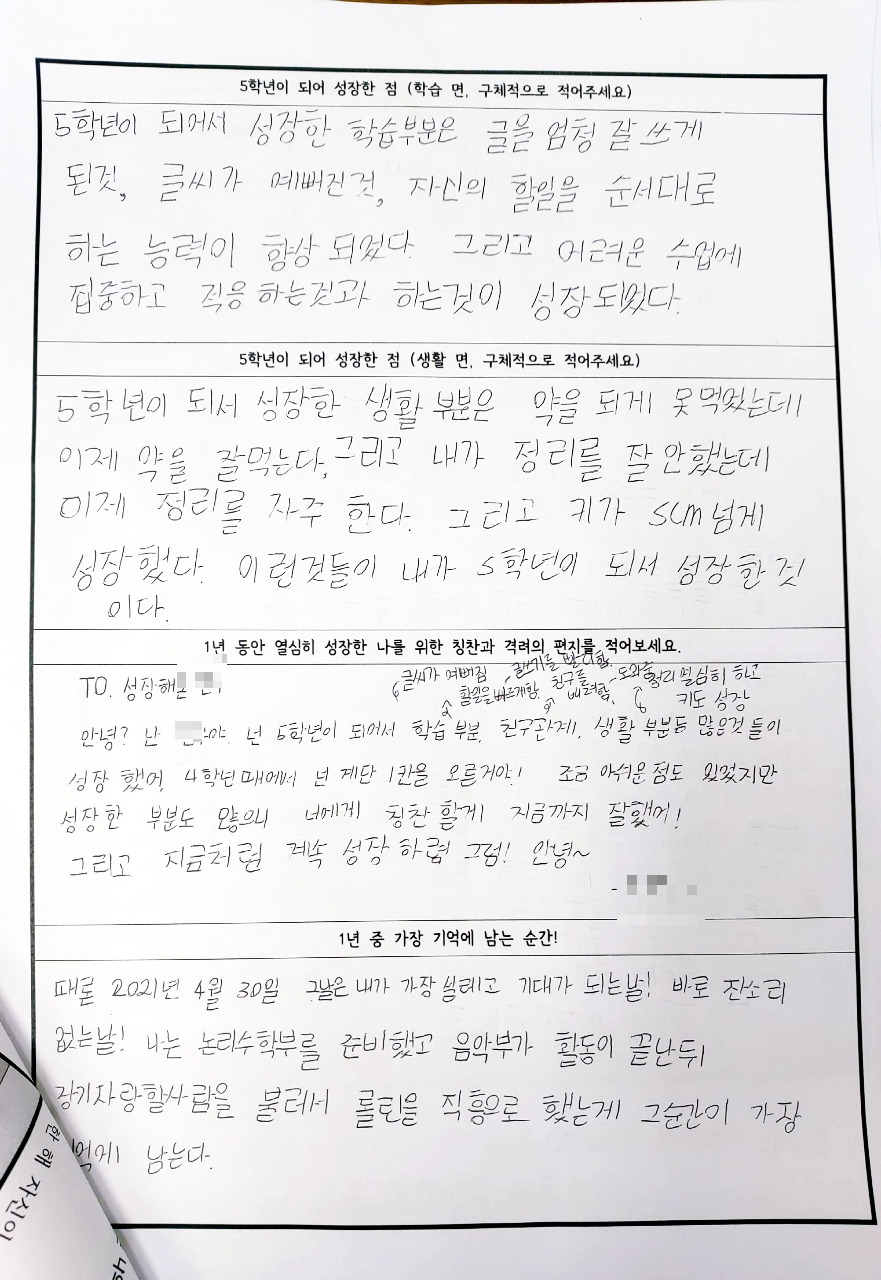 5학년이 되어 성장한 점 (학습 면, 구체적으로 적어주세요)
5학년이 되어서 성장한 학습부분은 글을 엄청 잘 쓰게
된것, 글씨가 예뻐진것, 자신의 할일을 순서대로
하는 능력이 향상 되었다. 그리고 어려운 수업에
집중하고 적응 하는것과 하는것이 성장되었다.
5학년이 되어 성장한 점 (생활 면, 구체적으로 적어주세요)
5학년이 되서 성장한 생활 부분은 약을 되게 못먹었는데
이제 약을 잘먹는다, 그리고 내가 정리를 잘 안했는데
이제 정리를 자주 한다. 그리고 키가 5cm넘게
성장했다. 이런것들이 내가 5학년이 되서 성장한것
이다.
1년 동안 열심히 성장한 나를 위한 칭찬과 격려의 편지를 적어보세요.
TO. 성장해온
글씨가 예뻐짐
할일을빠르게함, 친구를 배려함, 도와줌
정리 열심히 하고
키도 성장
안녕? 난 야. 넌 5학년이 되어서 학습 부분, 친구관계, 생활 부분등 많은것 들이
성장 했어, 4학년때에서 넌 계단 1칸을 오른거야! 조금 아쉬운점도 있겠지만
성장한 부분도 많으니 너에게 칭찬 할게 지금까지 잘했어!
그리고 지금처럼 계속 성장 하렴 그럼! 안녕~
-
1년 중 가장 기억에 남는 순간!
때는 2021년 4월 30일 그날은 내가 가장 설레고 기대가 되는날! 바로 잔소리
없는날! 나는 논리수학부를 준비했고 음악부가 활동이 끝난뒤
장기자랑할사람을 불러서 롤린을 직흥으로 했는게 그순간이 가장
억에 남는다.
한 해 자신이